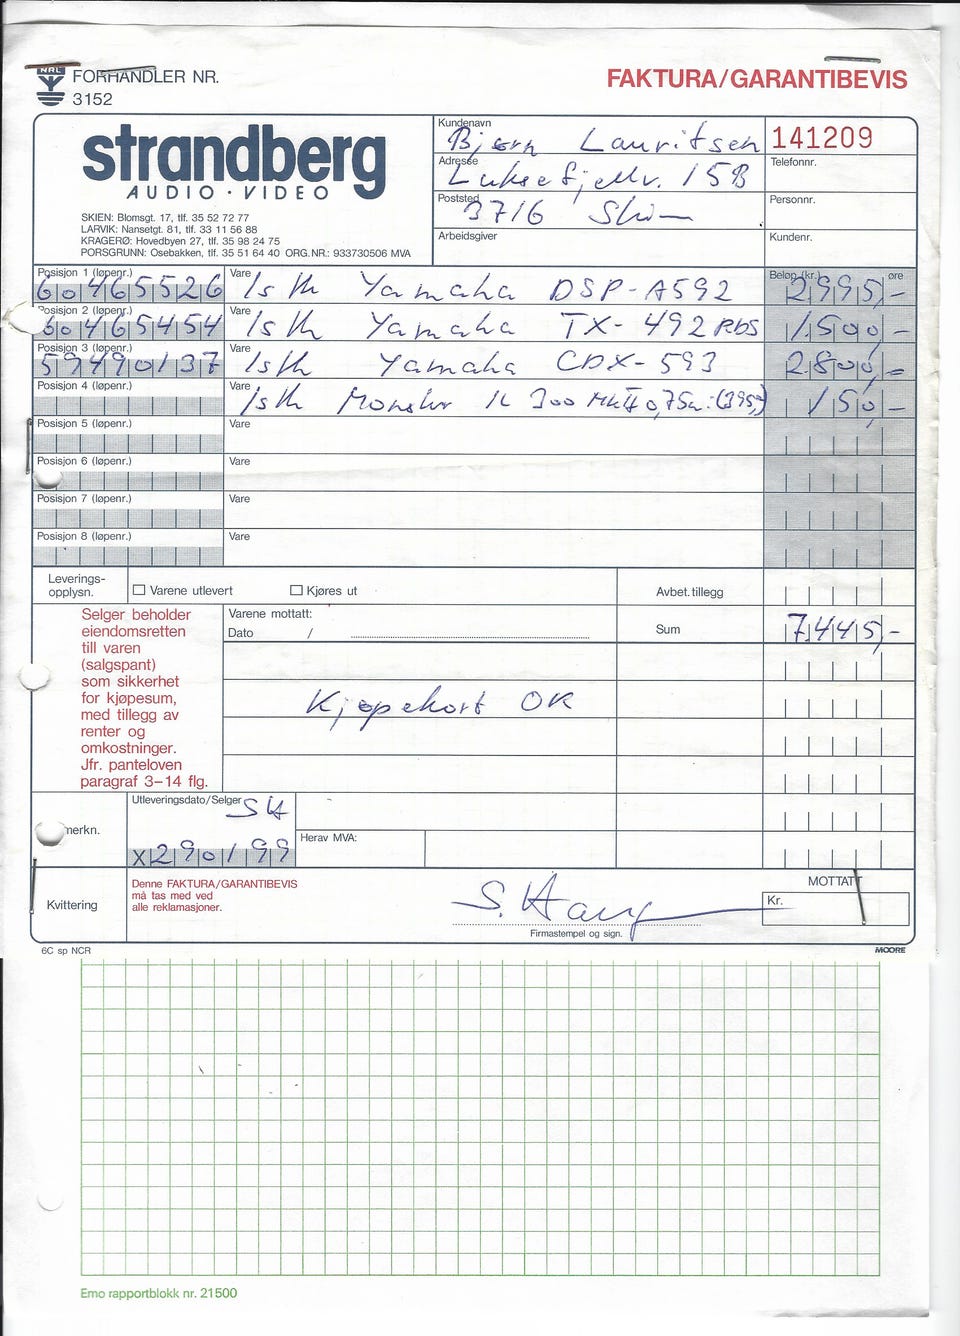 NRL
FORHANDLER NR.
3152
FAKTURA/GARANTIBEVIS
strandberg
AUDIO · VIDEO
SKIEN: Blomsgt. 17, tlf. 35 52 72 77
LARVIK: Nansetgt. 81, tlf. 33 11 56 88
KRAGERØ: Hovedbyen 27, tlf. 35 98 24 75
PORSGRUNN: Osebakken, tlf. 35 51 64 40 ORG.NR.: 933730506 MVA
Kundenavn
Bjørn Lauritsen
141209
Adresse
Luksefjellv. 15B
Telefonnr.
Poststed
3716 Skien
Personnr.
Arbeidsgiver
Kundenr.
Posisjon 1 (løpenr.) Vare Beløp (kr.) øre
60465526 1stk Yamaha DSP-A592 2995,-
Posisjon 2 (løpenr.) Vare
60465454 1stk Yamaha TX-492 RDS 1500,-
Posisjon 3 (løpenr.) Vare
59490137 1stk Yamaha CDX-593 2800,-
Posisjon 4 (løpenr.) Vare
1stk Monster IL 300 MkII 0,75m (395,-) 150,-
Posisjon 5 (løpenr.) Vare
Posisjon 6 (løpenr.) Vare
Posisjon 7 (løpenr.) Vare
Posisjon 8 (løpenr.) Vare
Leverings-
opplysn.
Varene utlevert
Kjøres ut
Avbet.tillegg
Selger beholder
eiendomsretten
till varen
(salgspant)
som sikkerhet
for kjøpesum,
med tillegg av
renter og
omkostninger.
Jfr. panteloven
paragraf 3–14 flg.
Varene mottatt:
Dato /
Sum 7445,-
Kjøpekort OK
Utleveringsdato/Selger
SH
merkn.
X290199
Herav MVA:
Kvittering
Denne FAKTURA/GARANTIBEVIS
må tas med ved
alle reklamasjoner.
S. Haug
Firmastempel og sign.
MOTTATT
Kr.
6C sp NCR
MOORE
Emo rapportblokk nr. 21500